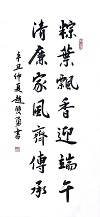 粽葉飄香迎端午
清廉家風齊傳承
辛丑仲夏趙
書